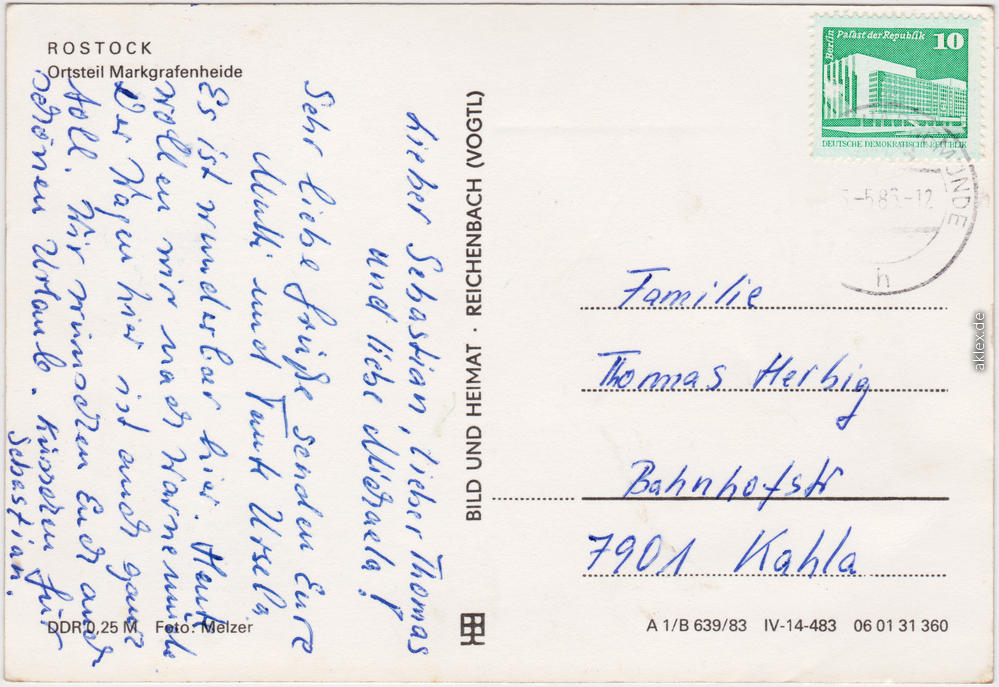 ROSTOCK
Ortsteil Markgrafenheide
Lieber Sebastian, lieber Thomas
und liebe Michaela!
Sehr liebe Grüße senden Eure
Mutti und Tante Ursela
Es ist wunderbar hier. Heute
wollen wir nach Warnemünde
Der Wagen hier ist auch ganz
toll. Wir wünschen Euch auch
schönen Urlaub. Küsschen für
Sebastian.
DDR 0,25 M Foto: Melzer
BILD UND HEIMAT · REICHENBACH (VOGTL)
Berlin Palast der Republik 10
DEUTSCHE DEMOKRATISCHE REPUBLIK
MÜNDE
-5.83-12
h
Familie
Thomas Herbig
Bahnhofstr
7901 Kahla
A 1/B 639/83 IV-14-483 06 01 31 360
aklex.de